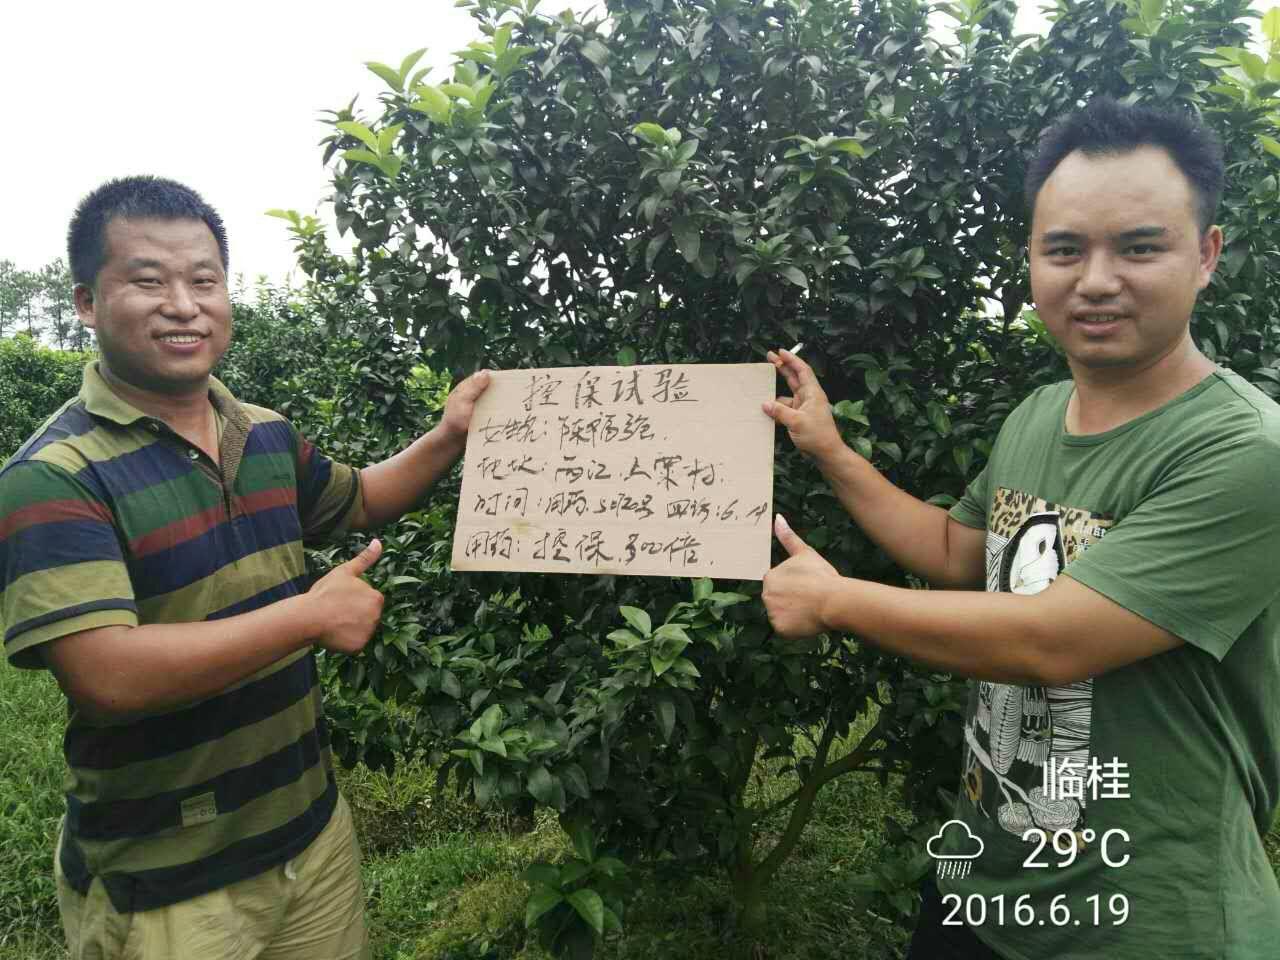 控保试验
姓名:陈福强.
地址:两江.上栗村.
时间:用药.5月20号 回访:6.19
用药:控保.300倍.
临桂
29°C
2016.6.19